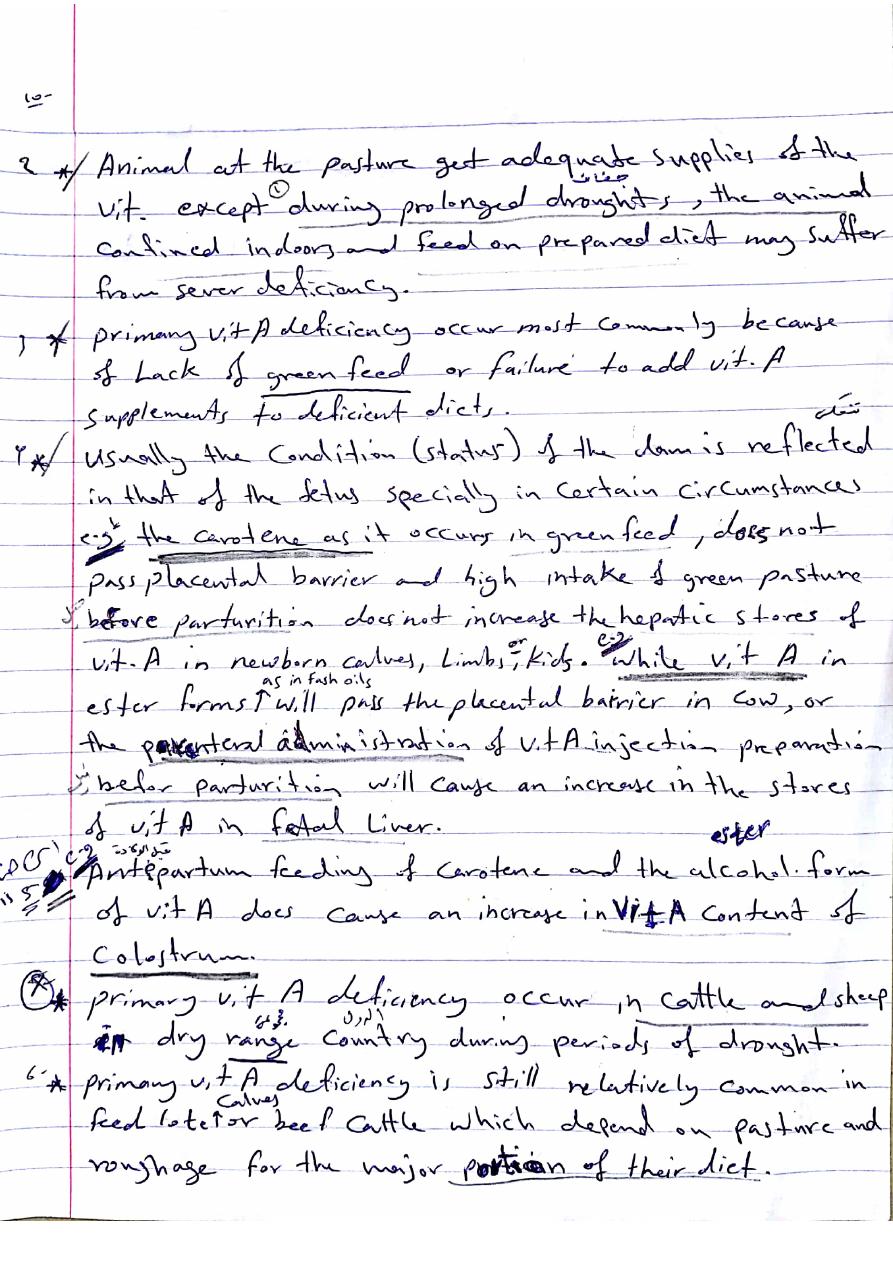 10-
2 * Animal at the pasture get adequate supplies of the
جفاف
vit. except ① during prolonged droughts, the animal
confined indoors and feed on prepared diet may suffer
from sever deficiency.
3 * primary vit A deficiency occur most commonly because
of Lack of green feed or failure to add vit. A
supplements to deficient diets.
4 * usually the Condition (status) of the dam is reflected
in that of the fetus specially in Certain Circumstances
e.g the carotene as it occurs in green feed, does not
pass placental barrier and high intake of green pasture
before parturition does not increase the hepatic stores of
vit. A in newborn calves, Limbs, or kids. e.g while vit A in
as in fash oils
ester forms ↑ will pass the placental barrier in Cow, or
the parenteral administration of vit A injection preparation
befor parturition will cause an increase in the stores
of vit A in fetal Liver.
ester
قبل الولادة
e.g Antepartum feeding of Carotene and the alcohol. form
of vit A does cause an increase in Vit A Content of
Colostrum.
* primary vit A deficiency occur in Cattle and sheep
in dry range Country during periods of drought.
6- * primary vit A deficiency is still relatively common in
Calves
feed lote ↑ or beef Cattle which depend on pasture and
roughage for the major portion of their diet.